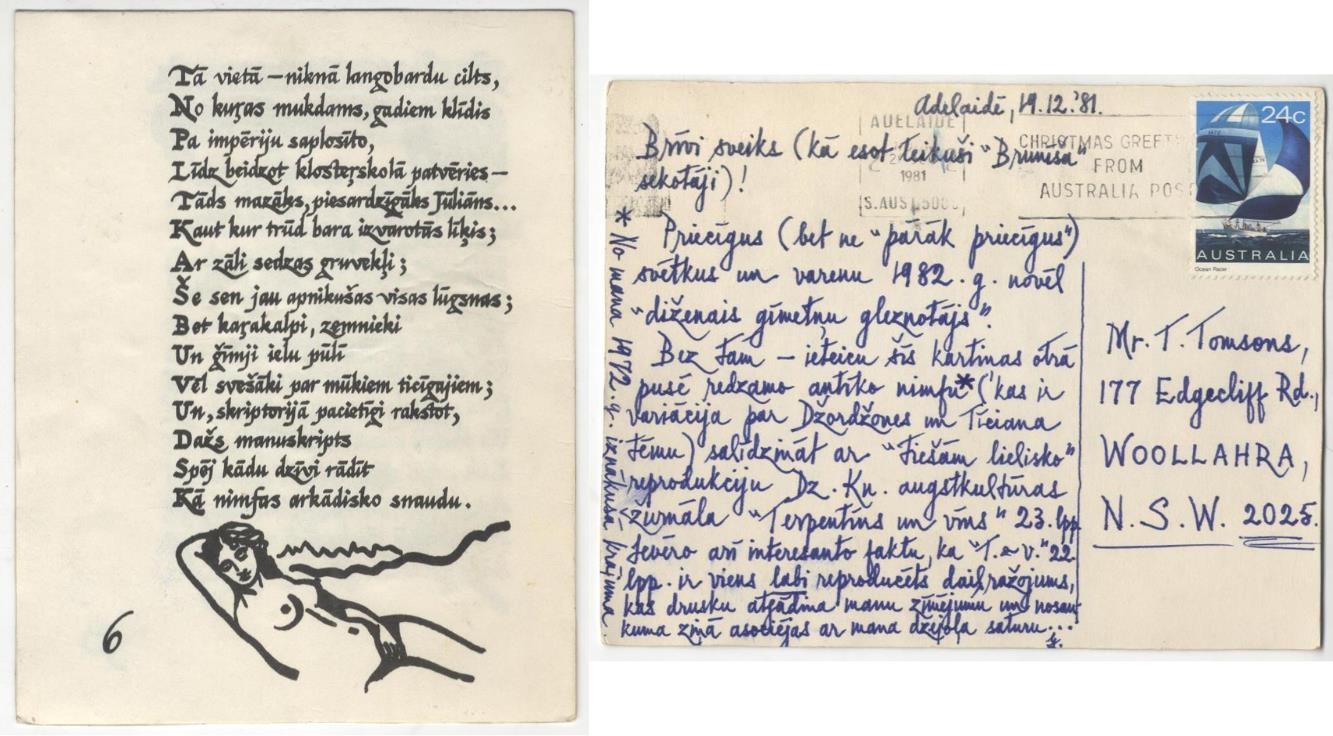 Tā vietā – niknā langobardu cilts,
No kuŗas mukdams, gadiem klīdis
Pa impēriju saplosīto,
Līdz beidzot klosteŗskolā patvēries –
Tāds mazāks, piesardzīgāks Jūliāns...
Kaut kur trūd bara izvarotās līķis;
Ar zāli sedzas gruvekļi;
Še sen jau apnikušas visas lūgsnas;
Bet kaŗakalpi, zemnieki
Un ģīmji ielu pūlī
Vēl svešāki par mūkiem ticīgajiem;
Un, skriptorijā pacietīgi rakstot,
Dažs manuskripts
Spēj kādu dzīvi rādīt
Kā nimfas arkādisko snaudu.
6
Adelaidē, 19.12.'81.
Brīvi sveiks (kā esot teikuši "Brīnuma"
sekotāji)!
Priecīgus (bet ne "pārāk priecīgus")
svētkus un varenu 1982. g. novēl
"diženais ģīmetņu gleznotājs".
Bez tam – ieteicu šīs kartiņas otrā
pusē redzamo antīko nimfu* (kas ir
variācija par Džordžones un Ticiana
tēmu) salīdzināt ar "tiešām lielisko"
reprodukciju Dz. Kn. augstkultūras
žurnāla "Terpentīns un vīns" 23. lpp.
Ievēro arī interesanto faktu, ka "T. u v." 22.
lpp. ir viens labi reproducēts daiļražojums,
kas drusku atgādina manu zīmējumu un nosau-
kuma ziņā asociējas ar mana dzejoļa saturu...
* No mana 1972. g. iznākušā krājuma.
ADELAIDE
1981
S. AUST 5000
CHRISTMAS GREET
FROM
AUSTRALIA POS
24c
AUSTRALIA
Ocean Racer
Mr. T. Tomsons,
177 Edgecliff Rd.,
WOOLLAHRA,
N.S.W. 2025.